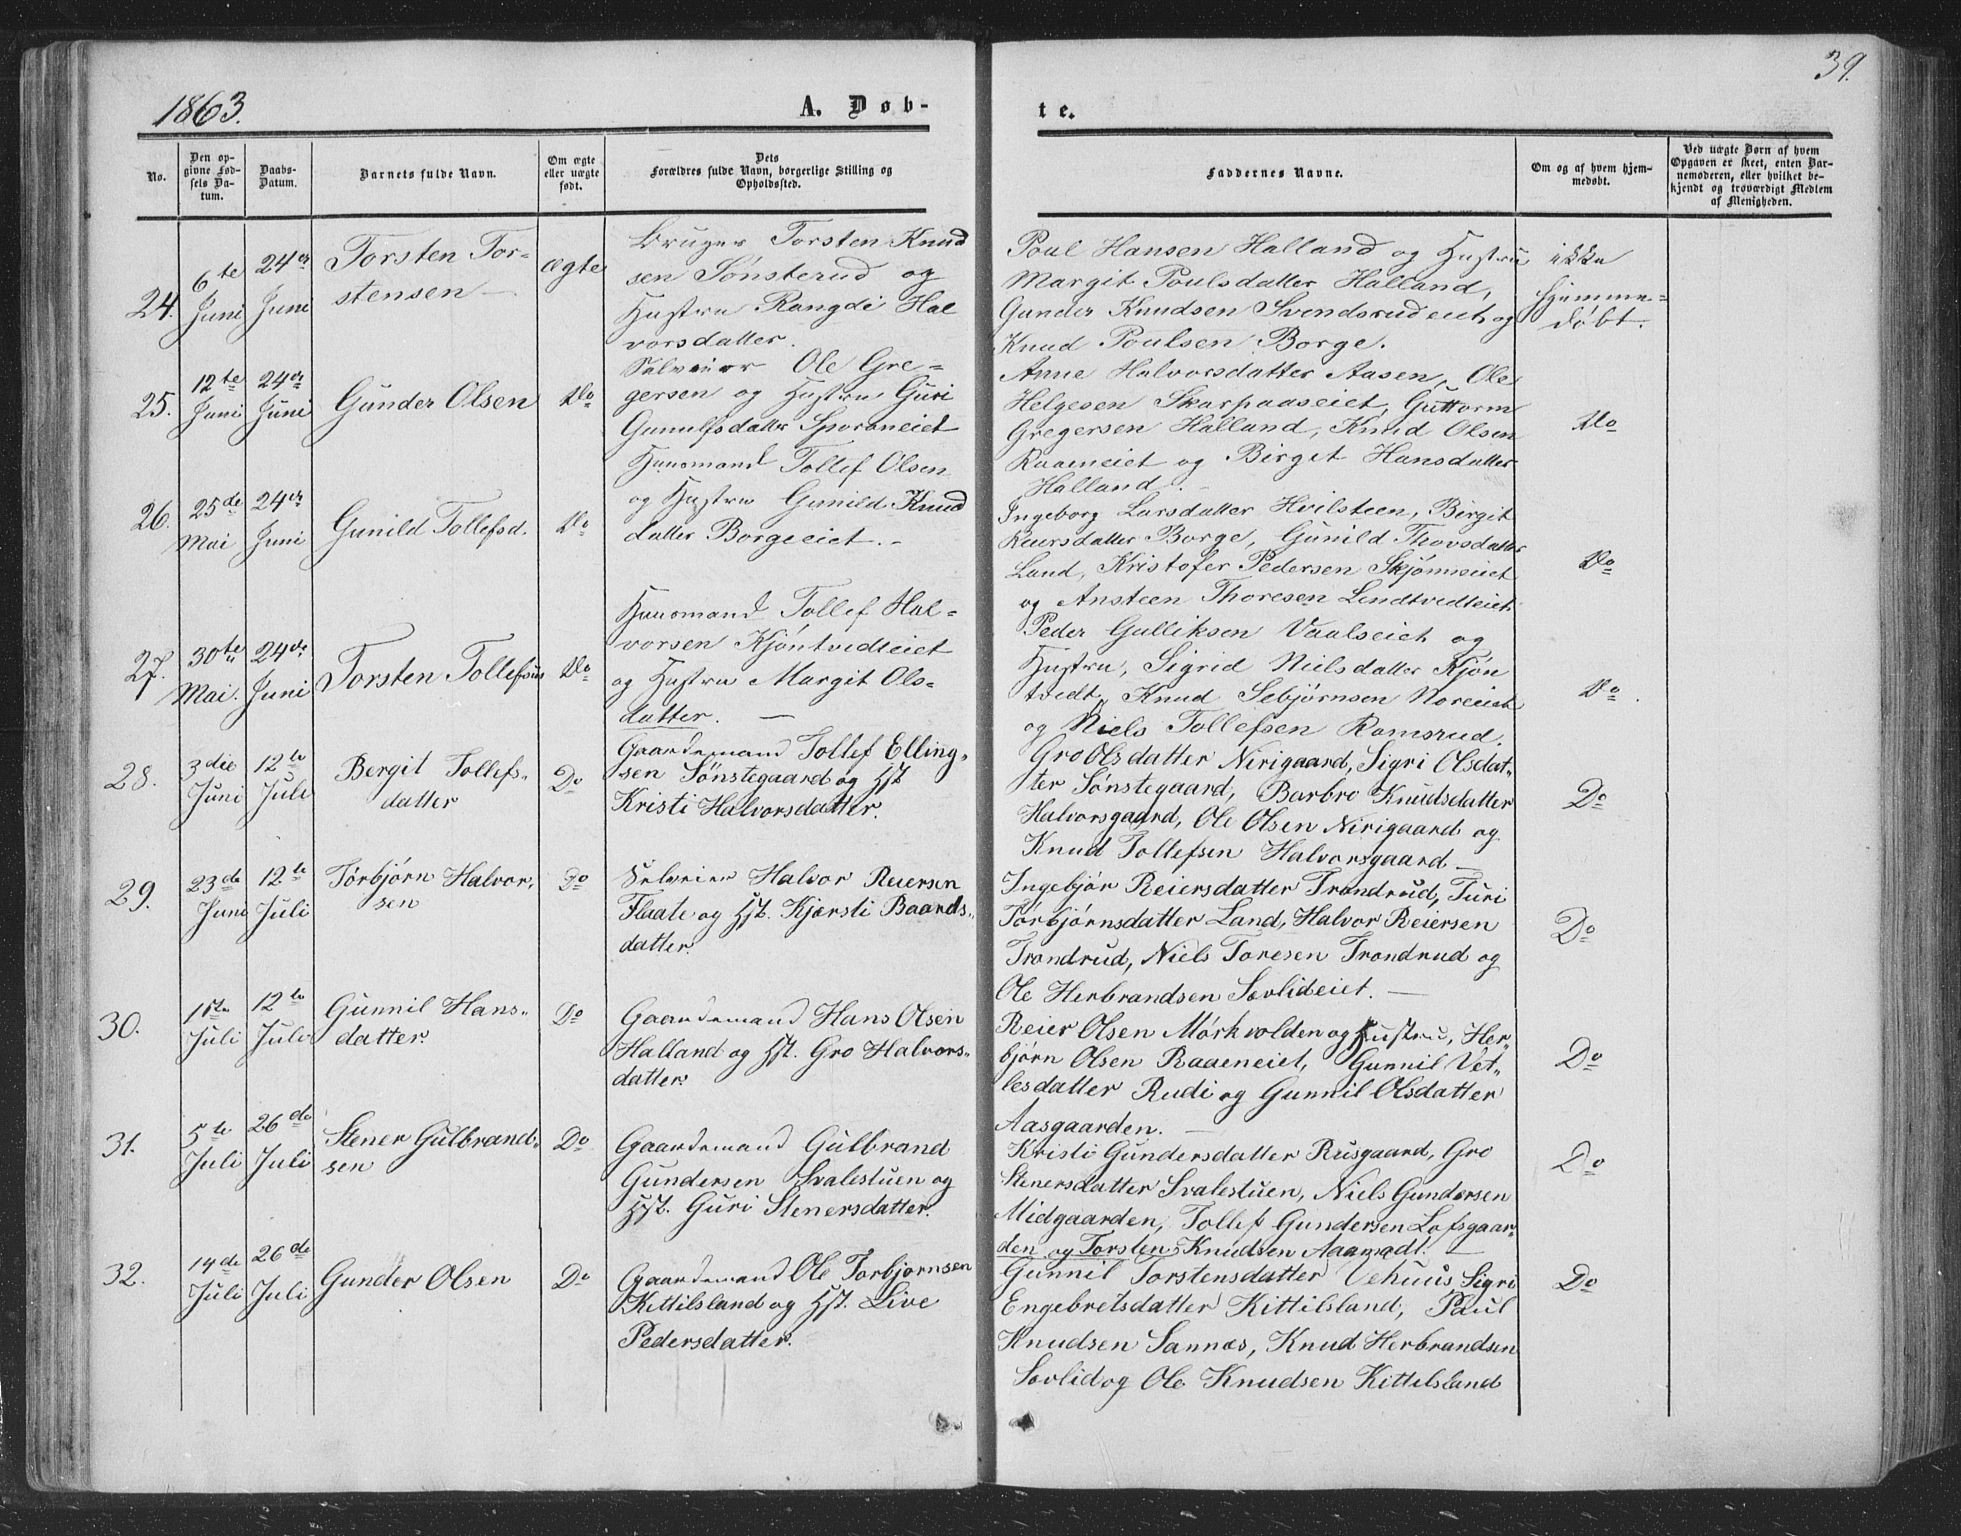 1863.
A. Døb-
te.
39.
No.
Den op-
givne Fød-
sels Da-
tum.
Daabs-
Datum.
Barnets fulde Navn.
Om ægte
eller uægte
født.
Dets
Forældres fulde Navn, borgerlige Stilling og
Opholdssted.
Faddernes Navne.
Om og af hvem hjem-
medøbt.
Ved uægte Børn af hvem
Opgaven er skeet, enten Bar-
nemoderen, eller hvilket be-
kjendt og troværdigt Medlem
af Menigheden.
24.
6te
Juni
24de
Juni
Torsten Tor-
stensen
ægte
Bruger Torsten Knud
sen Sønsterud og
Hustru Rangdi Hal
vorsdatter.
Poul Hansen Halland og Hustru
Margit Poulsdatter Halland,
Gunder Knudsen Svendsrudeiet og
Knud Poulsen Borge.
ikke
hjemme-
døbt.
25.
12te
Juni
24de
Juni
Gunder Olsen
Do
Selveier Ole Gre-
gersen og Hustru Guri
Gunulfsdatter Sporaneiet
Anne Halvorsdatter Aasen, Ole
Helgesen Skarpaaseiet, Guttorm
Gregersen Halland, Knud Olsen
Raaeneiet og Birget Hansdatter
Halland.
Do
26.
25de
Mai
24de
Juni
Gunild Tollefsd.
Do
Huusmand Tollef Olsen
og Hustru Gunild Knud
datter Borgeeiet.
Ingeborg Larsdatter Hvilsteen, Birgit
Reiersdatter Borge, Gunild Thorsdatter
Land, Kristofer Pedersen Skjømneiet
og Ansteen Thoresen Lindtvedteiet
Do
27.
30te
Mai.
24de
Juni
Torsten Tollefsen
Do
Huusmand Tollef Hal-
vorsen Kjøntvedteiet
og Hustru Margit Ols-
datter.
Peder Gulliksen Vaalseiet og
Hustru, Sigrid Nielsdatter Kjøn
tvedt, Knud Sebjørnsen Noreeiet
og Niels Tollefsen Ramsrud.
Do
28.
3die
Juni
12te
Juli
Bergit Tollefs-
datter
Do
Gaardemand Tollef Elling-
sen Sønstegaard og Hst
Kristi Halvorsdatter.
Gro Olsdatter Nirigaard, Sigri Olsdat-
ter Sønstegaard, Barbro Knudsdatter
Halvorsgaard, Ole Olsen Nirigaard og
Knud Tollefsen Halvorsgaard
Do
29.
23de
Juni
12te
Juli
Torbjørn Halvor-
sen
Do
Selveier Halvor Reiersen
Flaate og Hst. Kjersti Baards-
datter.
Ingebjør Reiersdatter Trondrud, Turi
Torbjørnsdatter Land, Halvor Reiersen
Trondrud, Niels Toresen Trondrud og
Ole Herbrandsen Sævlideiet.
Do
30.
1ste
Juli
12te
Juli
Gunnil Hans-
datter.
Do
Gaardemand Hans Olsen
Halland og Hst. Gro Halvors-
datter.
Reier Olsen Mørkvolden og Hustru, Her-
bjørn Olsen Raaeneiet, Gunnil Vet-
lesdatter Rudi og Gunnil Olsdatter
Aasgaarden.
Do
31.
5te
Juli
26de
Juli
Stener Gulbrand-
sen
Do
Gaardemand Gulbrand
Gundersen Svalestuen og
Hst. Guri Stenersdatter.
Kristi Gundersdatter Ruisgaard, Gro
Stenersdatter Svalestuen, Niels Gundersen
Midgaarden, Tollef Gundersen Lofsgaar-
den og Torsten Knudsen Aamodt.
Do
32.
14de
Juli
26de
Juli
Gunder Olsen
Do
Gaardemand Ole Torbjornsen
Kittilsland og Hst. Live
Pedersdatter.
Gunnil Torstensdatter Vehuus, Sigri
Engebretsdatter Kittilsland, Paul
Knudsen Sannæs, Knud Herbrandsen
Sævlid og Ole Knudsen Kittilsland
Do